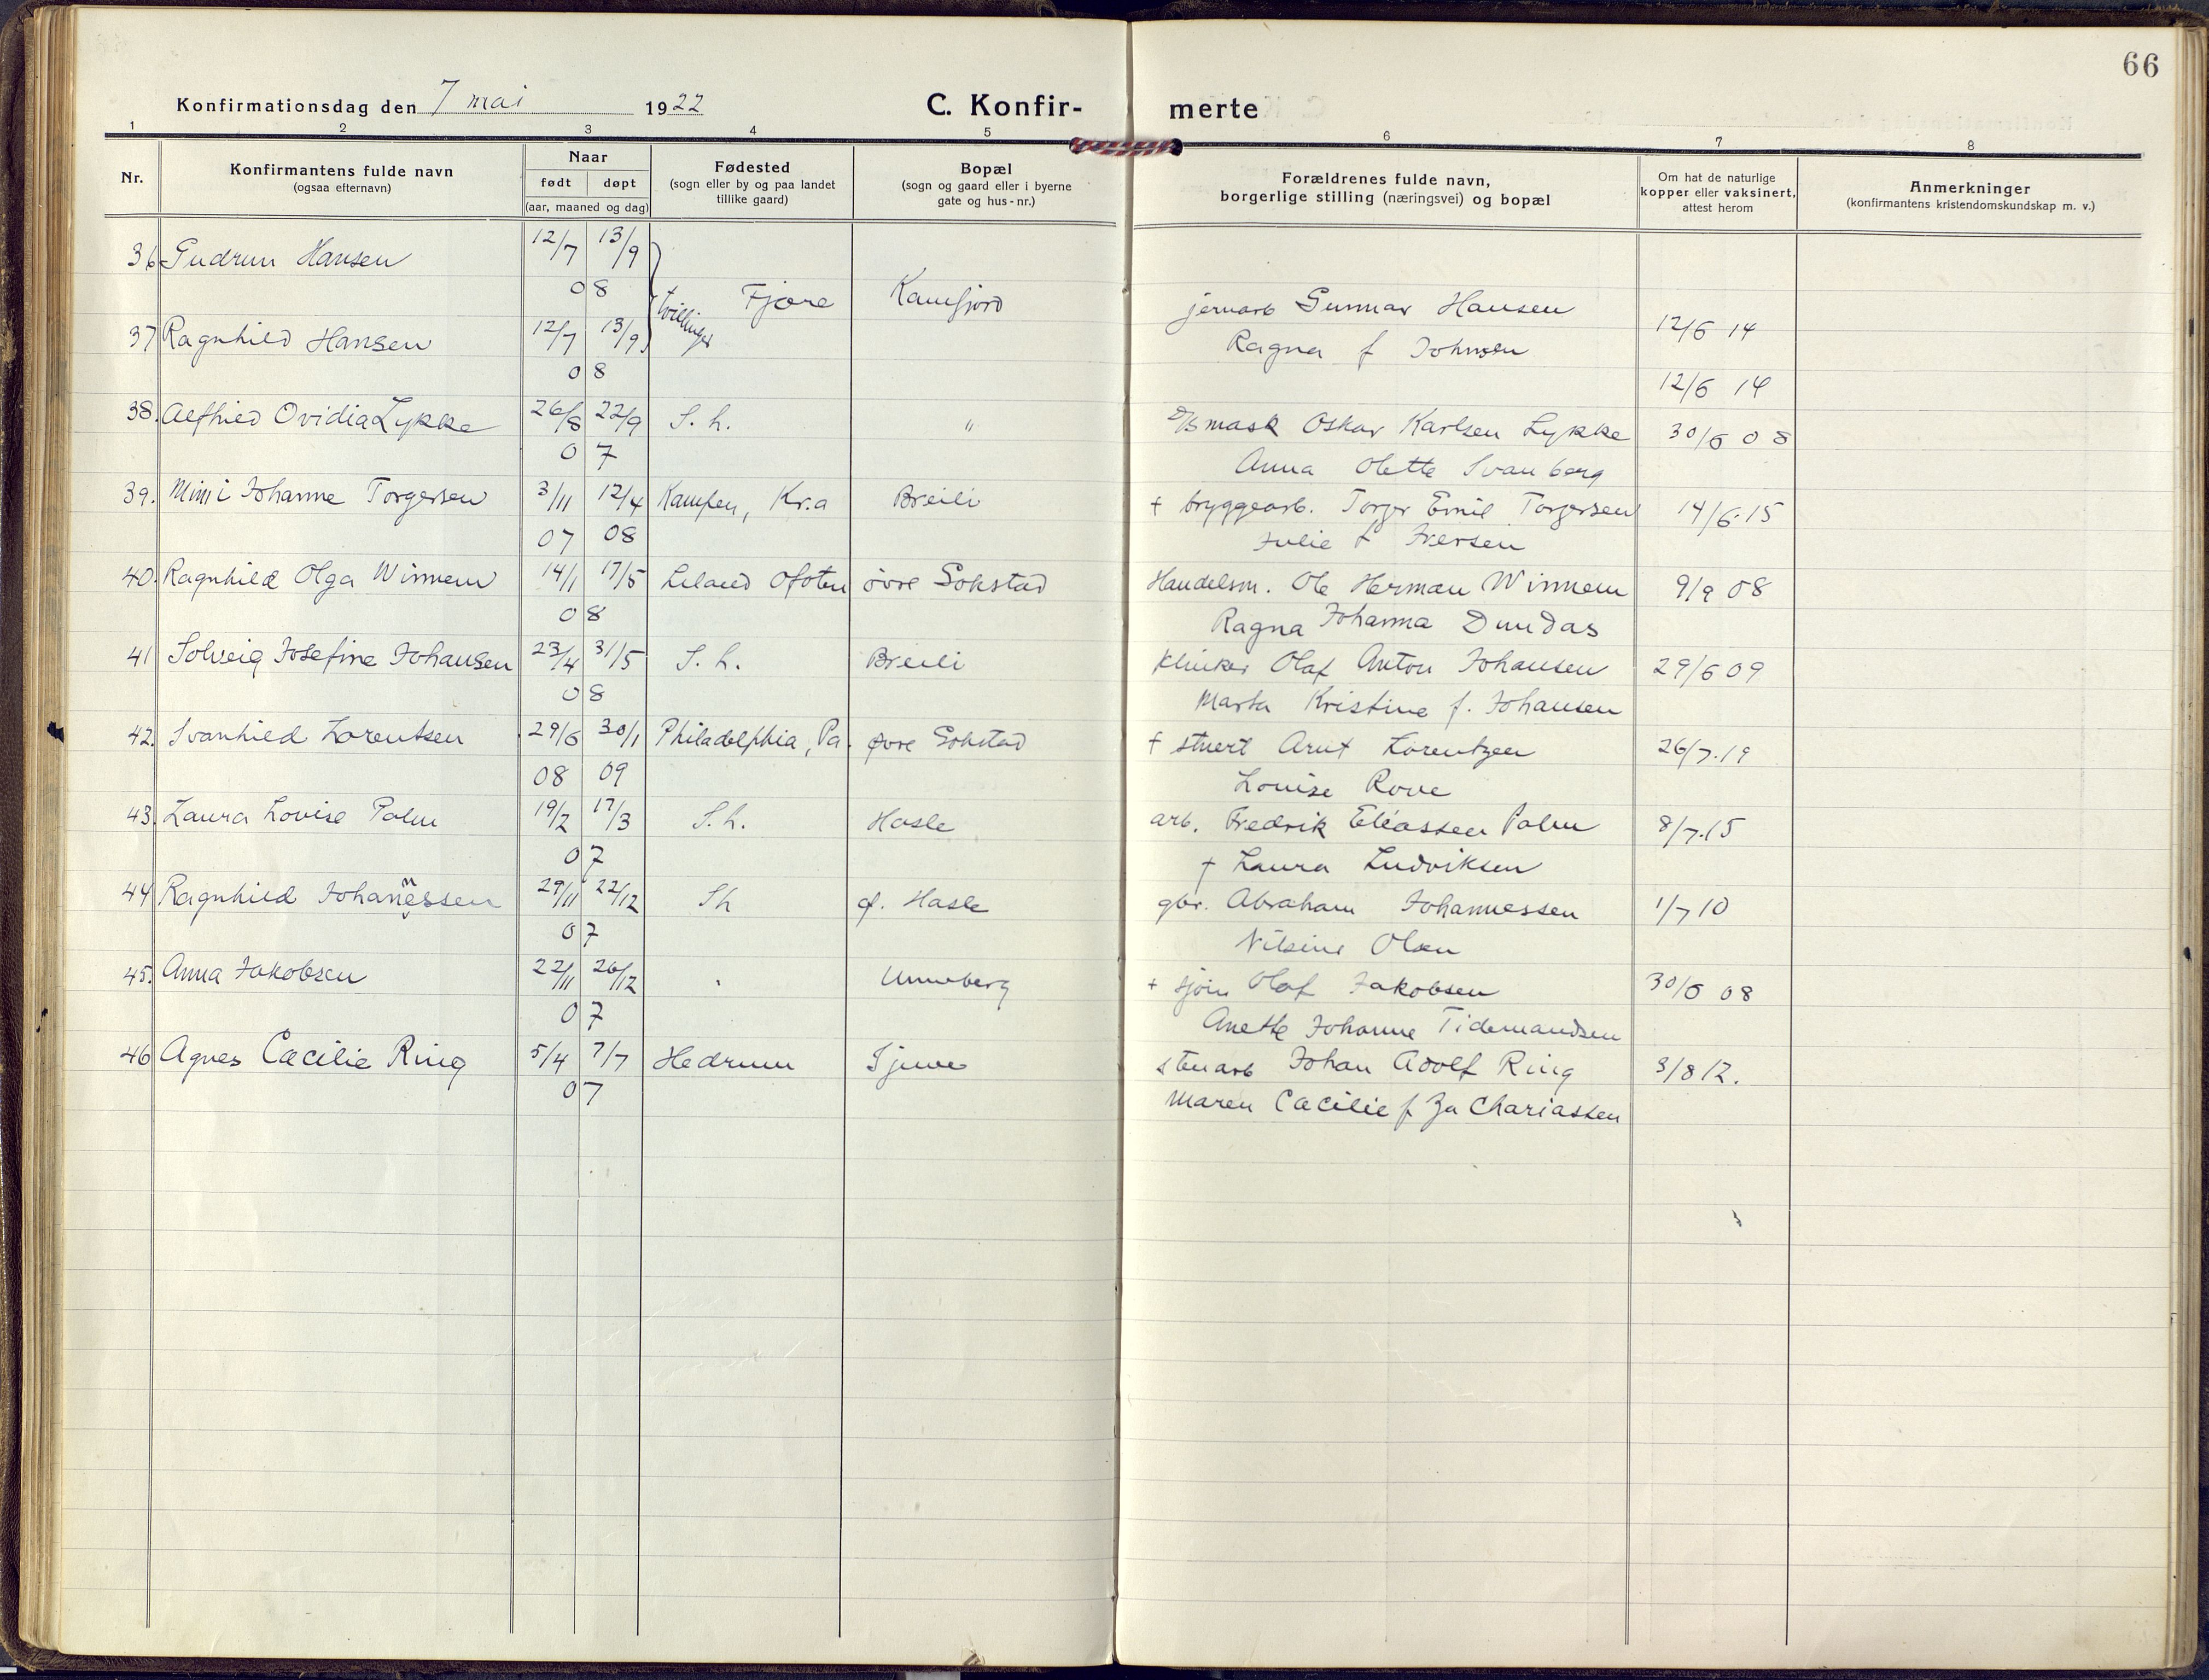 66
Konfirmationsdag den 7 mai 1922 C. Konfir- merte
1 2 3 4 5 6 7 8
Nr. Konfirmantens fulde navn (ogsaa efternavn) Naar født døpt (aar, maaned og dag) Fødested (sogn eller by og paa landet tillike gaard) Bopæl (sogn og gaard eller i byerne gate og hus-nr.) Forældrenes fulde navn, borgerlige stilling (næringsvei) og bopæl Om hat de naturlige kopper eller vaksinert, attest herom Anmerkninger (konfirmantens kristendomskundskap m. v.)
36 Gudrun Hansen 12/7 13/9
08 tvillinger Fjære Kamfjord jernarb Gunnar Hansen
37 Ragnhild Hansen 12/7 13/9 Ragna f Johnsen 12/6 14
08 12/6 14
38. Alfhild Ovidia Lykke 26/8 22/9 S. h. " D/S mask Oskar Karlsen Lykke 30/6 08
07 Anna Olette Svanberg
39. Mimi Johanne Torgersen 3/11 12/4 Kampen, Kr.a Breili † bryggearb. Torger Emil Torgersen 14/6.15
07 08 Julie f Iversen
40. Ragnhild Olga Winnem 14/1 17/5 Leland Ofoten øvre Gokstad Handelsm. Ole Herman Winnem 9/9 08
08 Ragna Johanna Dundas
41 Solveig Josefine Johansen 23/4 31/5 S. h. Breili Klinker Olaf Anton Johansen 29/6 09
08 Marta Kristine f. Johansen
42. Svanhild Lorentsen 29/6 30/1 Philadelphia, Pa. øvre Gokstad † stuert Arnt Lorentzen 26/7.19
08 09 Louise Rove
43. Laura Lovise Palm 19/2 17/3 S. h. Hasle arb. Fredrik Eliassen Palm 8/7.15
07 † Laura Ludviksen
44 Ragnhild Johannessen 29/11 22/12 Sh ø. Hasle gbr. Abraham Johannessen 1/7 10
07 Nilsine Olsen
45. Anna Jakobsen 22/11 26/12 " Unneberg † sjøm Olaf Jakobsen 30/6 08
07 Anette Johanne Tidemandsen
46 Agnes Cæcilie Ring 5/4 7/7 Hedrum Tjuve stenarb Johan Adolf Ring 3/8 12.
07 Maren Cæcilie f Zachariassen